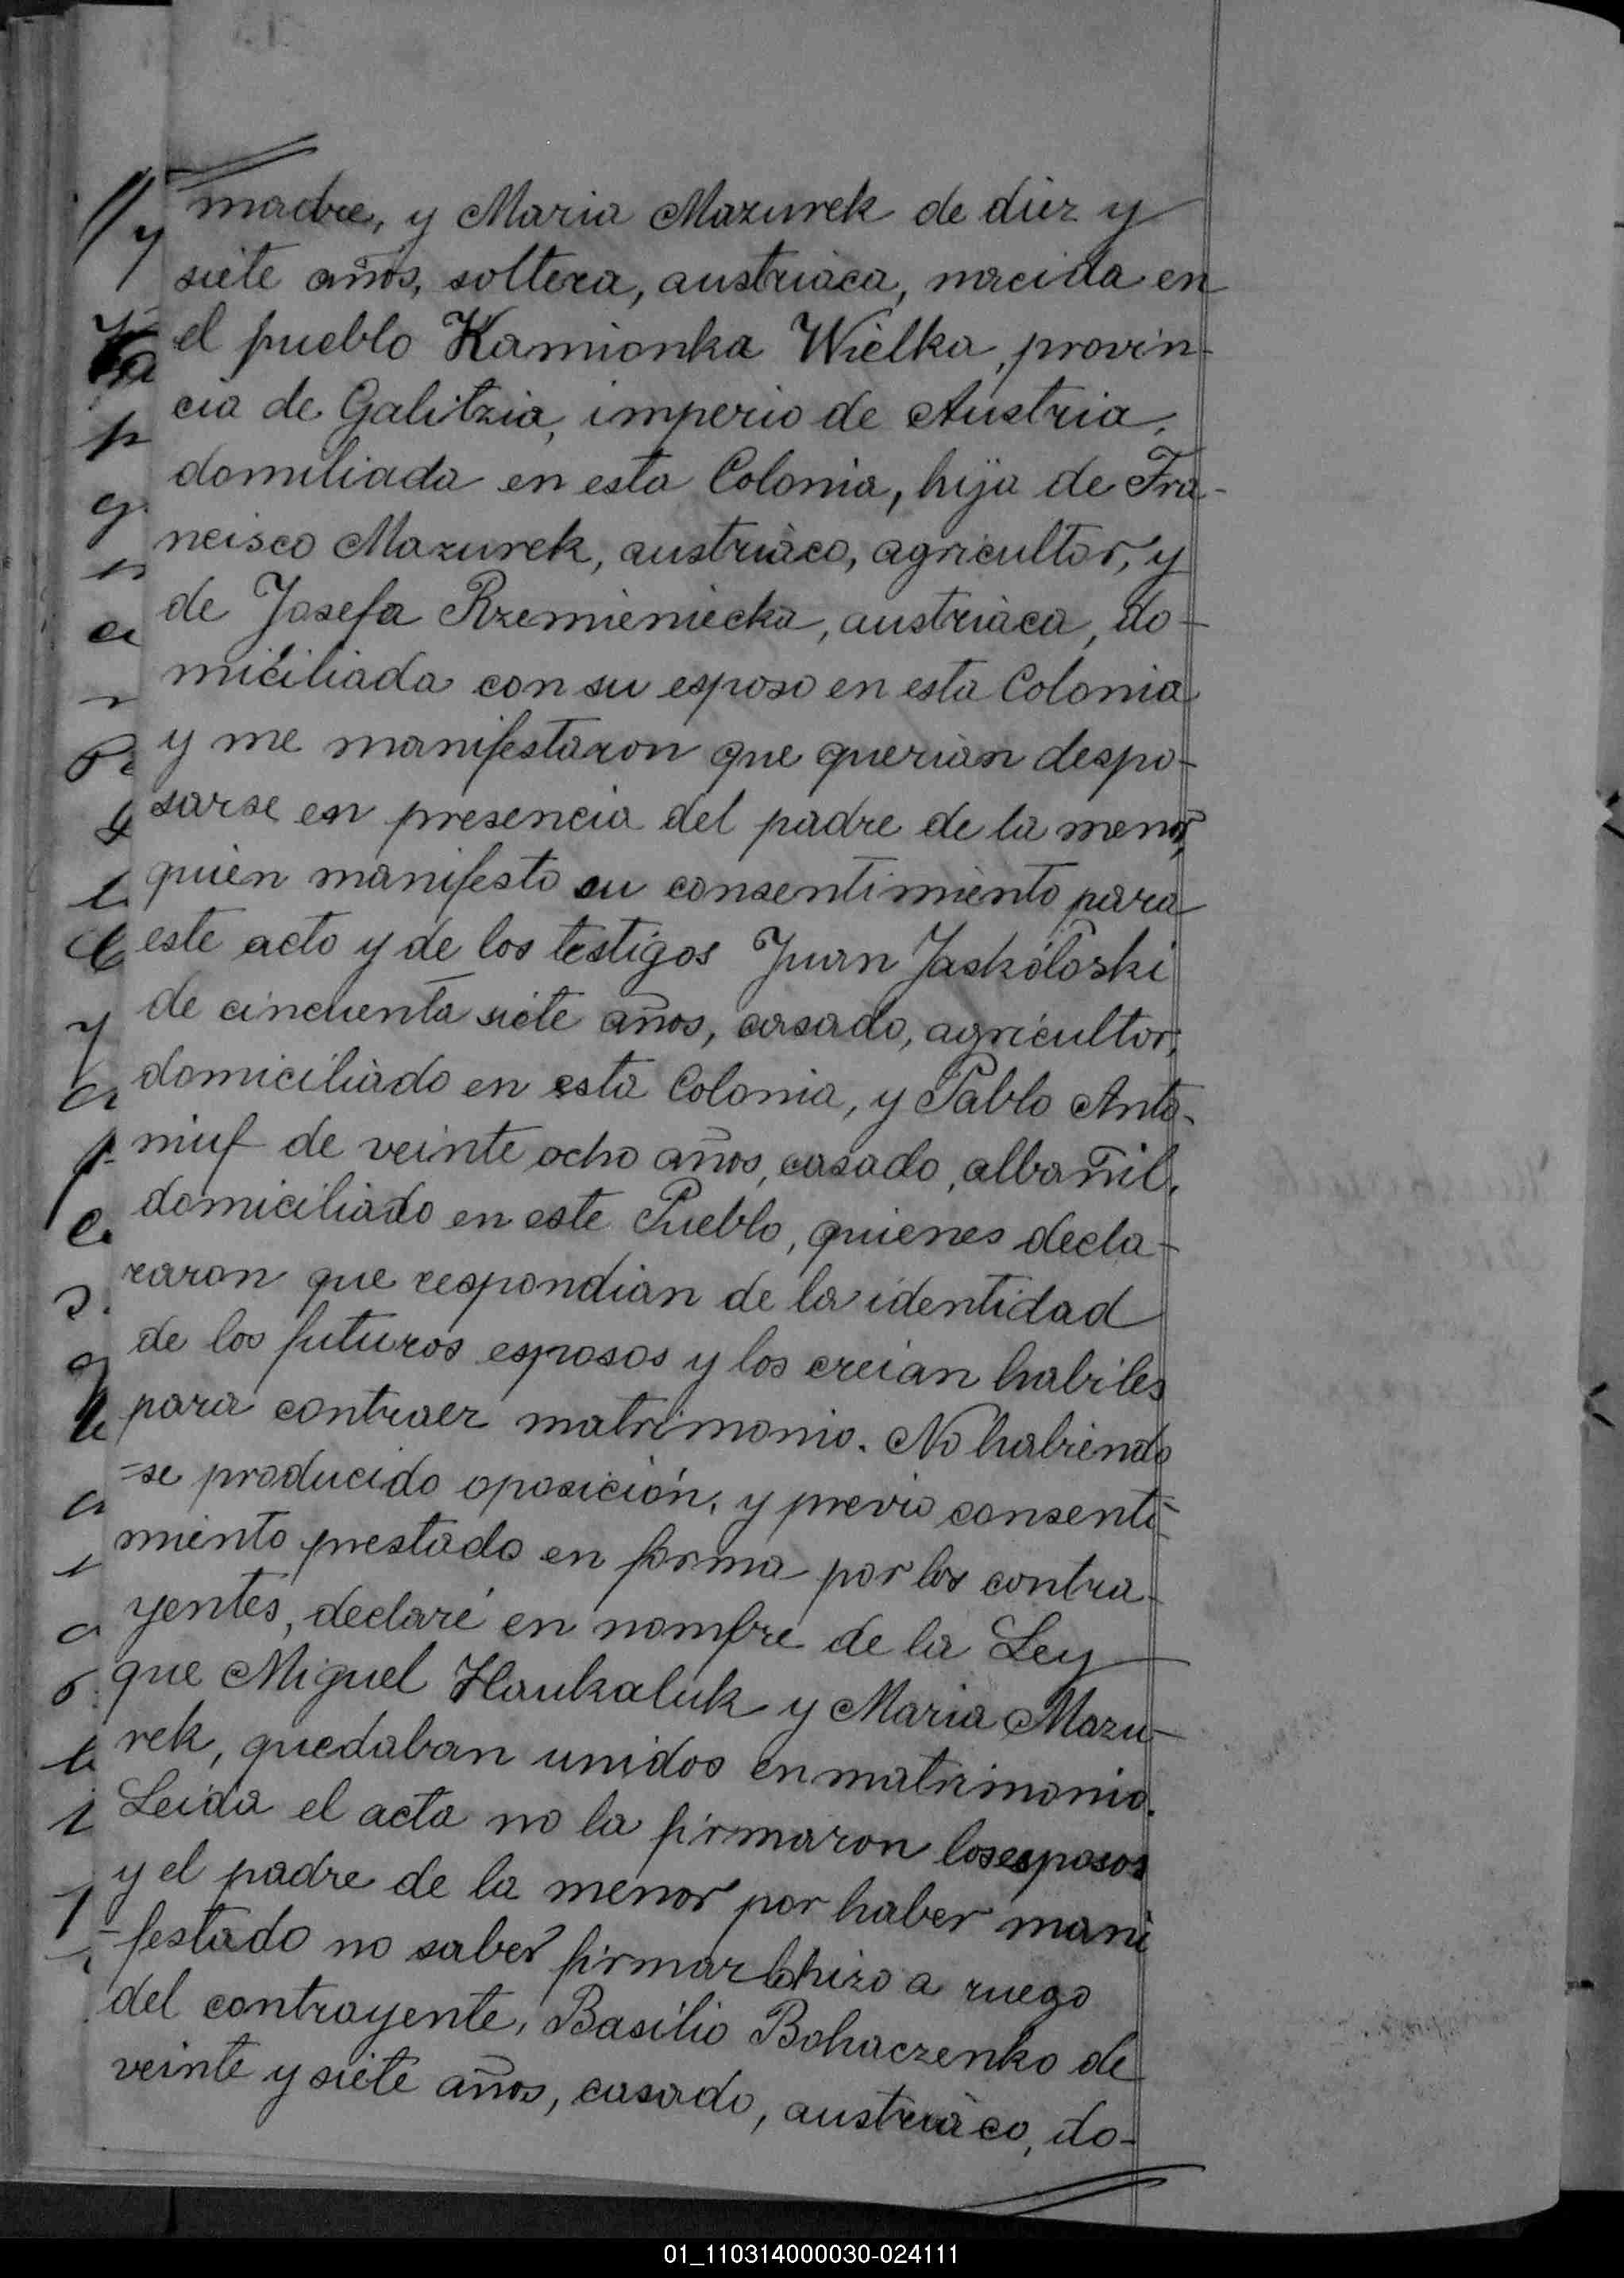 madre, y Maria Mazurek de diez y
siete años, soltera, austriaca, nacida en
el pueblo Kamionka Wielka, provin-
cia de Galitzia, imperio de Austria,
domiliada en esta Colonia, hija de Fra-
ncisco Mazurek, austriaco, agricultor, y
de Josefa Rzemieniecka, austriaca, do-
miciliada con su esposo en esta Colonia
y me manifestaron que querian despo-
sarse en presencia del padre de la menor,
quien manifesto su consentimiento para
este acto y de los testigos Juan Jaskółoski
de cincuenta siete años, casado, agricultor,
domiciliado en esta Colonia, y Pablo Anto-
niuf de veinte ocho años, casado, albañil,
domiciliado en este Pueblo, quienes decla-
raron que respondian de la identidad
de los futuros esposos y los creian habiles
para contraer matrimonio. No habiendo
=se producido oposición, y previo consenti-
miento prestado en forma por los contra-
yentes, declaré en nombre de la Ley
que Miguel Haukaluk y Maria Mazu-
rek, quedaban unidos en matrimonio.
Leida el acta no la firmaron los esposos
y el padre de la menor por haber mani
=festado no saber firmar lo hizo a ruego
del contrayente, Basilio Bohaczenko de
veinte y siete años, casado, austriaco, do-
01_110314000030-024111